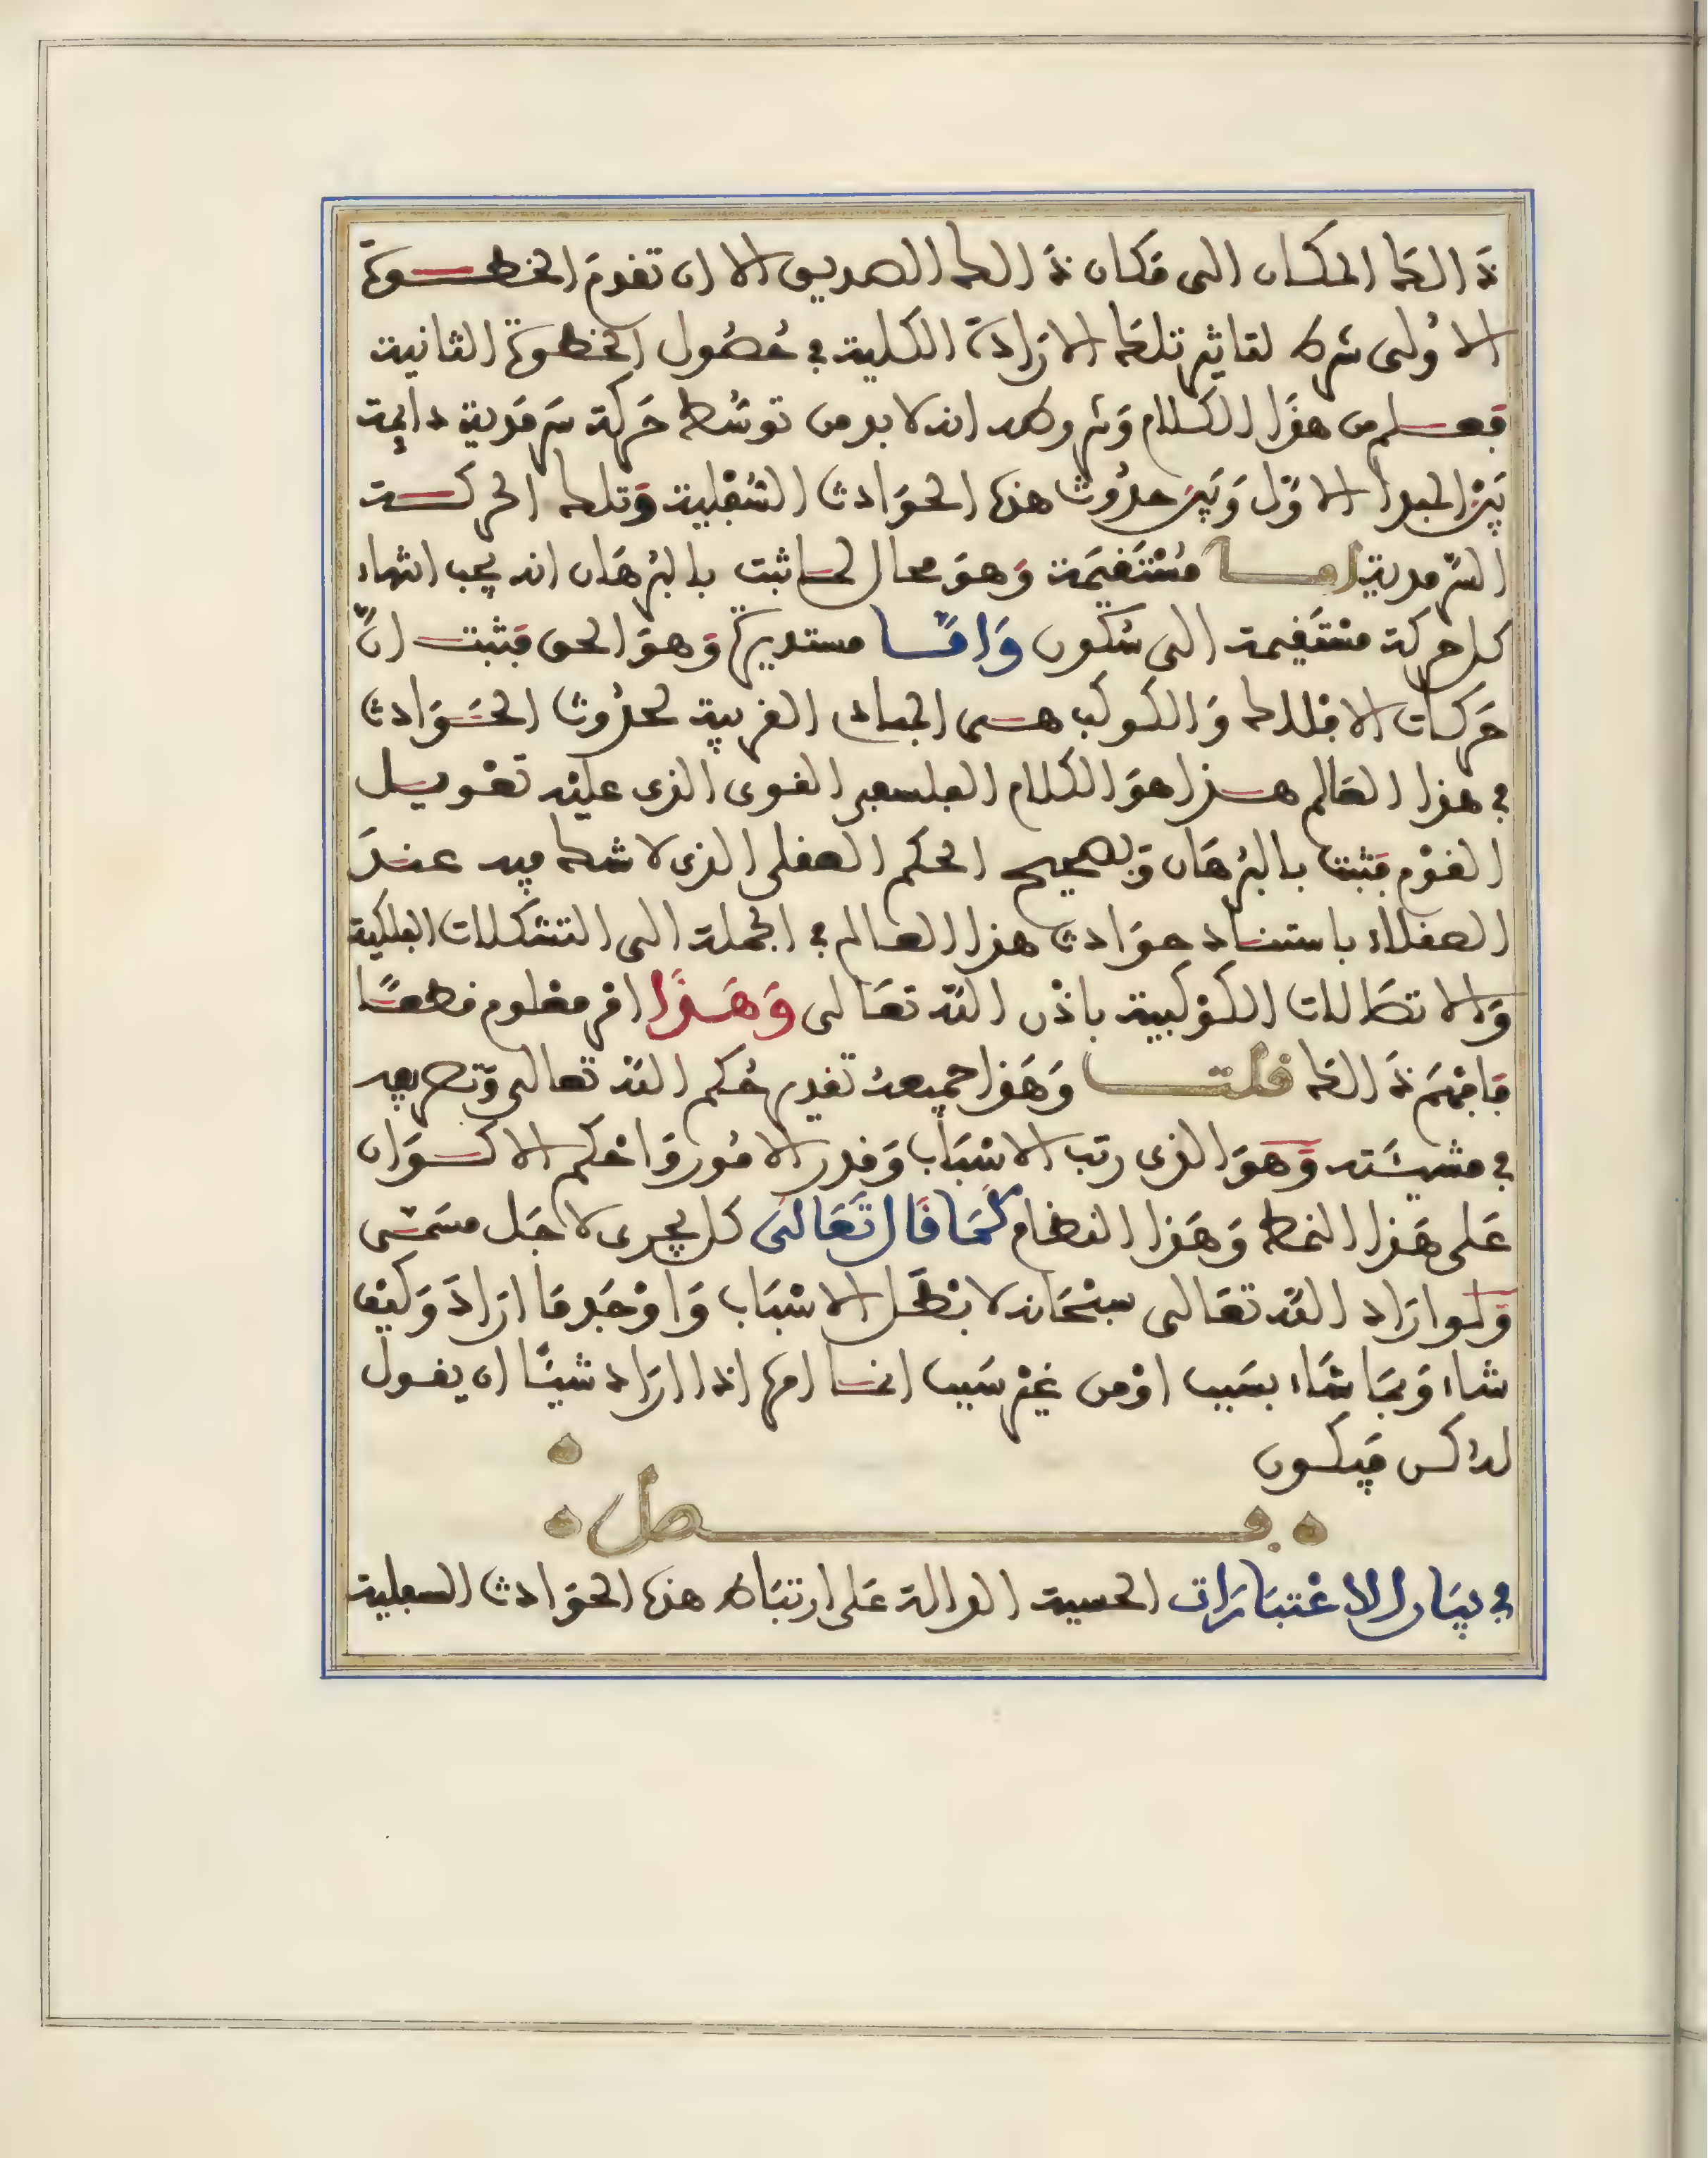 ذَالكَ المكان الى مَكان ذَالك الصديق الا ان تقدمَ الخطــوةَ
الاُولى شرط لتاثير تلكَ الارَادة الكلية في حُصُول الخطوة الثانية
فعــلم من هذَا الكلام وَشروطه انه لا بد من توسُّط حَركة سَرمَدية دايمة
بَيْن المبدإ الاوّل وَبَيْن حدُوث هذه الحوَادث السُّفْلية وَتلك الحركــة
السّرمدية امــا مُسْتَقيمَة وَهوَ محال لما ثبت بالبُرهَان انه يجب انتهاء
كل حركة مسْتَقيمة الى سُكون وَامّــا مستديرة وَهوَ الحق فثبتــ انّ
حَركات الافلاك وَالكوَاكب هــى المبادى القريبة لحدُوث الحــوَادث
في هذا العَالم هــذا هوَ الكلام الفلسفى القوى الذى عليْه تعْويــل
القوْم فثبت بالبُرهَان وَبصحيح الحكم العقلى الذى لا شك فيه عنــدَ
العقلاء باستنــاد حوَادث هذا العــالم في الجملة الى التشكلات الفلكية
وَالاتصَالات الكوْكبية باذْن اللّه تعَالى وَهَــذَا امْر معْلوم قطعــًا
فافْهَم ذَالكَ قلتــ وَهَذا جميعهُ تقدير حُكم اللّه تعالى وَتصريفه
في مشيــئَته وَهوَ الذى رتب الاسْبَاب وَقدر الامُور وَاحْكم الاكــوَان
عَلى هَذا النمط وَهَذا النظام كَمَا قَال تَعَالىَ كل يجرى لاجَل مسَمّــى
وَلــو ارَاد اللّه تعَالى سبْحَانه لابْطَــل الاسْبَاب وَاوْجَد مَا ارَادَ وَكيْف
شاء وَبمَا شَاء بسَبب اوْ من غيْر سَبب انمــا امره اذا ارَاد شيئًا ان يقول
لهُ كــن فَيكــون
فــصل
في بيَان الاعْتبَارَات الحسية الدالة عَلى ارتبَاط هذه الحوَادث السفلية